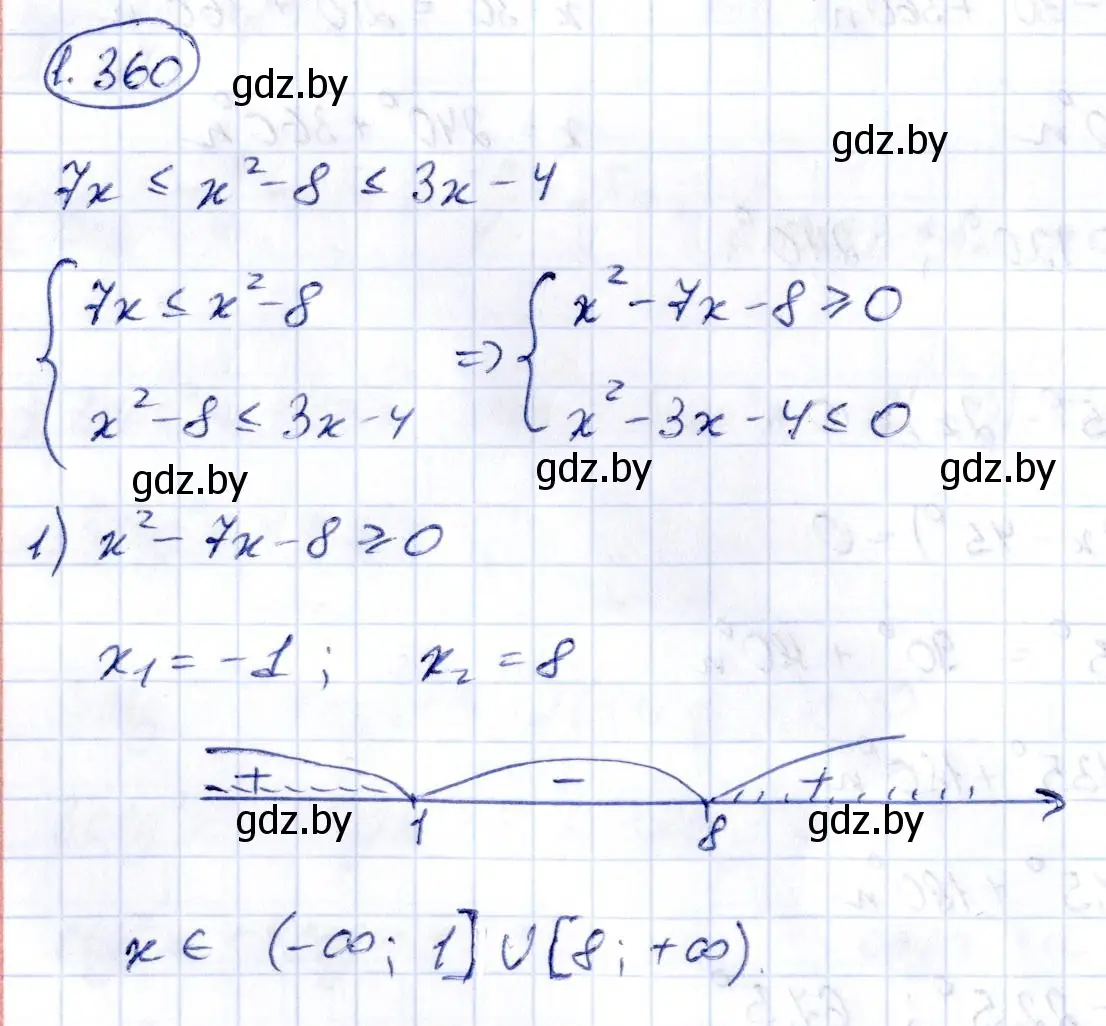 1.360 gdz.by
gdz.by
7x ≤ x² - 8 ≤ 3x - 4
{ 7x ≤ x² - 8 => { x² - 7x - 8 ≥ 0
x² - 8 ≤ 3x - 4 x² - 3x - 4 ≤ 0
gdz.by gdz.by gdz.by
1) x² - 7x - 8 ≥ 0
x₁ = -1; x₂ = 8
+ - +
gdz.by 1 8 gdz.by
x ∈ (-∞; 1] ∪ [8; +∞).